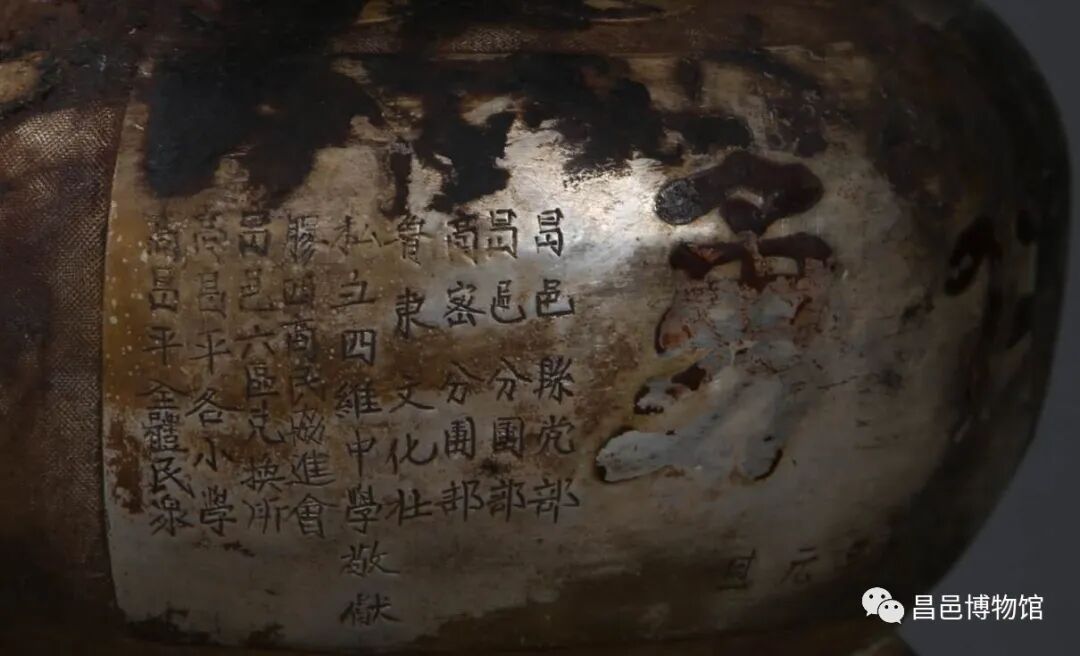 元旦
昌邑縣党部
昌邑分團部
高密分團部
魯東文化社
私立四維中學敬獻
膠西商民協進會
昌邑六區兌換所
高昌平各小學
高昌平全體民眾
昌邑博物馆